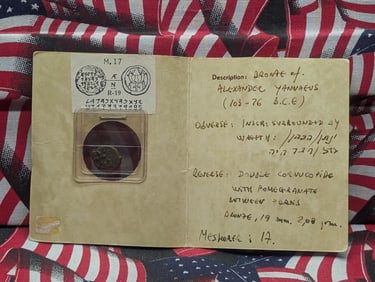 M.17
Æ
N
R-19
Description: BRONZE of
ALEXANDER YANNAEUS
(103-76 B.C.E)
OBVERSE: INSCR: SURROUNDED BY
WREATH:
REVERSE: DOUBLE CORNUCOPIAE
WITH POMEGRANATE
BETWEEN HORNS
BRONZE, 19 mm. 2,08 grm.
MESHORER: 17.